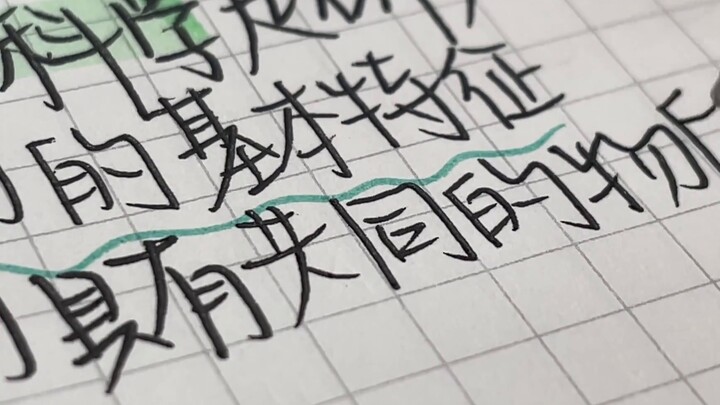 科学
的基本特征
具有共同的物